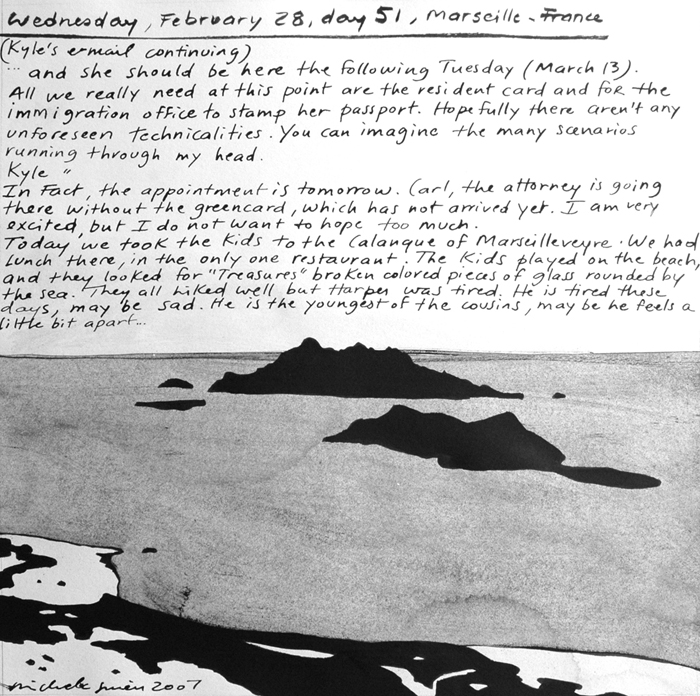 Wednesday, February 28, day 51, Marseille - France
(Kyle's e-mail continuing)
... and she should be here the following Tuesday (March 13).
All we really need at this point are the resident card and for the
immigration office to stamp her passport. Hopefully there aren't any
unforeseen technicalities. You can imagine the many scenarios
running through my head.
Kyle "
In fact, the appointment is tomorrow. Carl, the attorney is going
there without the greencard, which has not arrived yet. I am very
excited, but I do not want to hope too much.
Today we took the kids to the Calanque of Marseilleveyre. We had
lunch there, in the only one restaurant. The kids played on the beach,
and they looked for "Treasures" broken colored pieces of glass rounded by
the sea. They all hiked well but Harper was tired. He is tired those
days, may be sad. He is the youngest of the cousins, may be he feels a
little bit apart...
2007